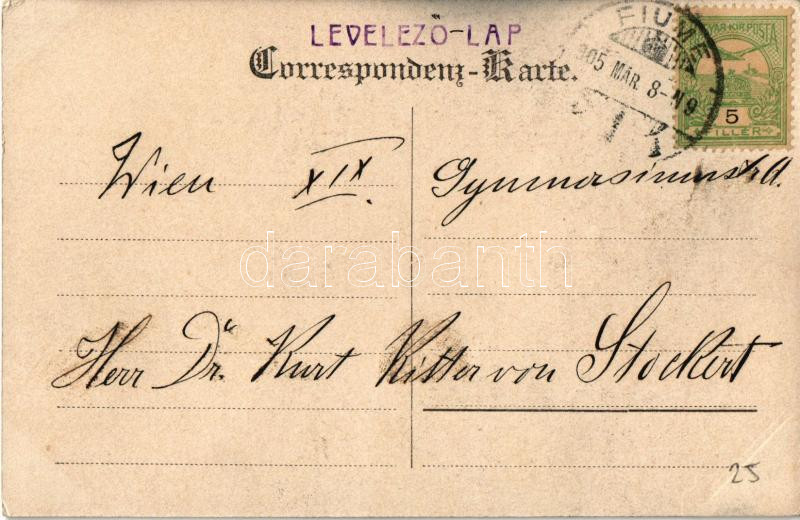 LEVELEZŐ-LAP
Correspondenz-Karte.
FIUME
905 MÁR. 8-N9
MAGYAR KIR. POSTA
5
FILLÉR
Wien XIX. Gymnasiumstr.
darabanth
Herr Dr. Kurt Ritter von Stockert
25